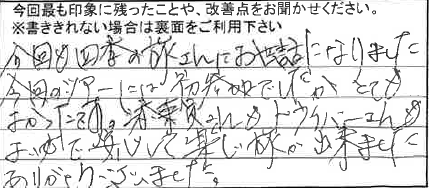 今回最も印象に残ったことや、改善点をお聞かせください。
※書ききれない場合は裏面をご利用下さい
今回も四季の旅さんにお世話になりました
今回のツアーには初参加でしたが とても
よかったです。添乗員さんもドライバーさんも
よい方で安心して楽しい旅が出来ました
ありがとうございました。